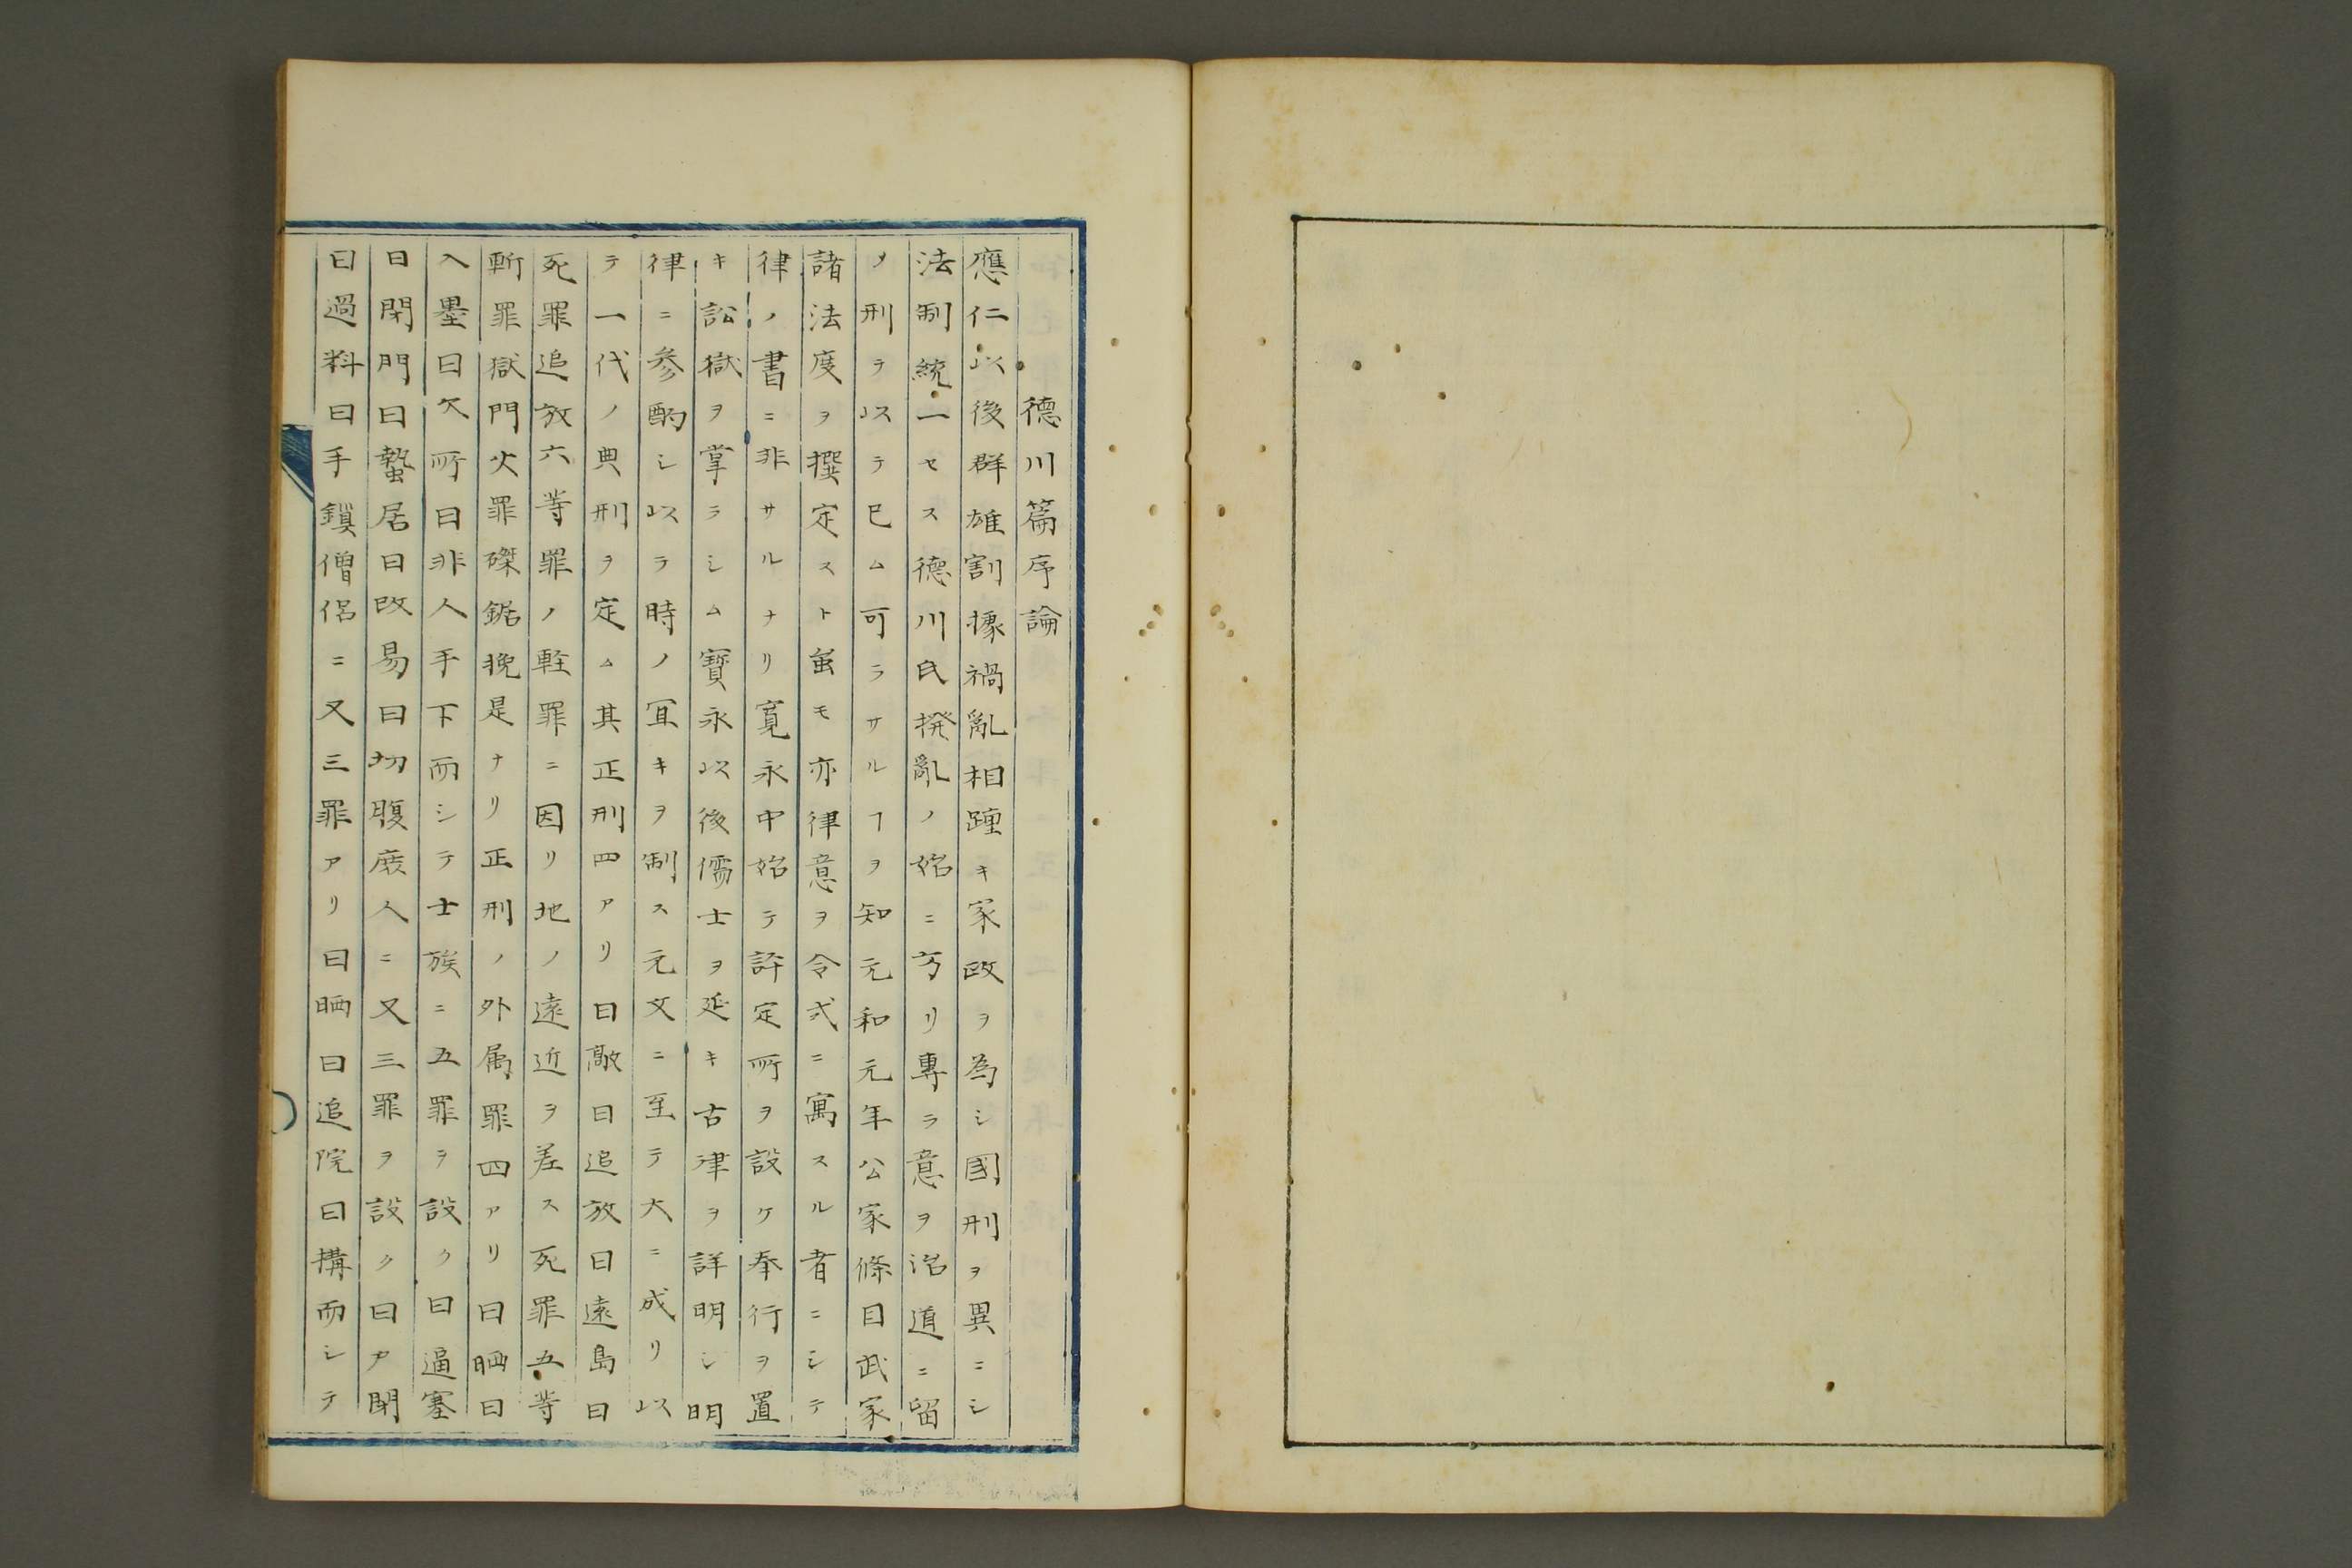 德川篇序論
應仁以後群雄割據禍亂相踵キ家政ヲ為シ國刑ヲ異ニシ
法制統一セス德川氏撥亂ノ始ニ方リ專ラ意ヲ治道ニ留
メ刑テ以テ已ム可ラサルヿヲ知元和元年公家條目武家
諸法度ヲ撰定スト虽モ亦律意ヲ令式ニ寓スル者ニシテ
律ノ書ニ非サルナリ寬永中始テ評定所ヲ設ケ奉行ヲ置
キ訟獄ヲ掌ラシム寶永以後儒士ヲ延キ古律ヲ詳明シ明
律ニ參酌シ以テ時ノ冝キヲ制ス元文ニ至テ大ニ成リ以
テ一代ノ典刑ヲ定ム其正刑四アリ曰敲曰追放曰遠島曰
死罪追放六等罪ノ軽罪ニ因リ地ノ遠近ヲ差ス死罪五等
斬罪獄門火罪磔鋸挽是ナリ正刑ノ外属罪四アリ曰晒曰
入墨曰欠所曰非人手下而シテ士族ニ五罪ヲ設ク曰逼塞
曰閉門曰蟄居曰改易曰切腹庶人ニ又三罪ヲ設ク曰戸閉
曰過料曰手鎖僧侶ニ又三罪アリ曰晒曰追院曰搆而シテ